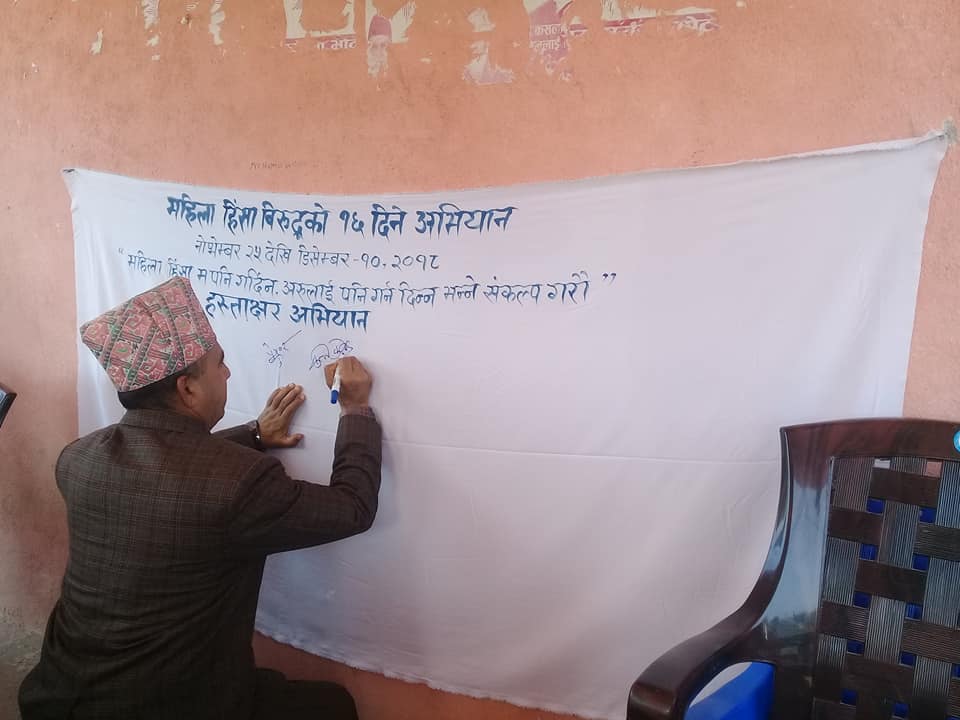 महिला हिंसा बिरुद्धको १६ दिने अभियान
नोभेम्बर २५ देखि डिसेम्बर-१०, २०१८
“महिला हिंसा म पनि गर्दिन, अरुलाई पनि गर्न दिन्न भन्ने संकल्प गरौं”
हस्ताक्षर अभियान